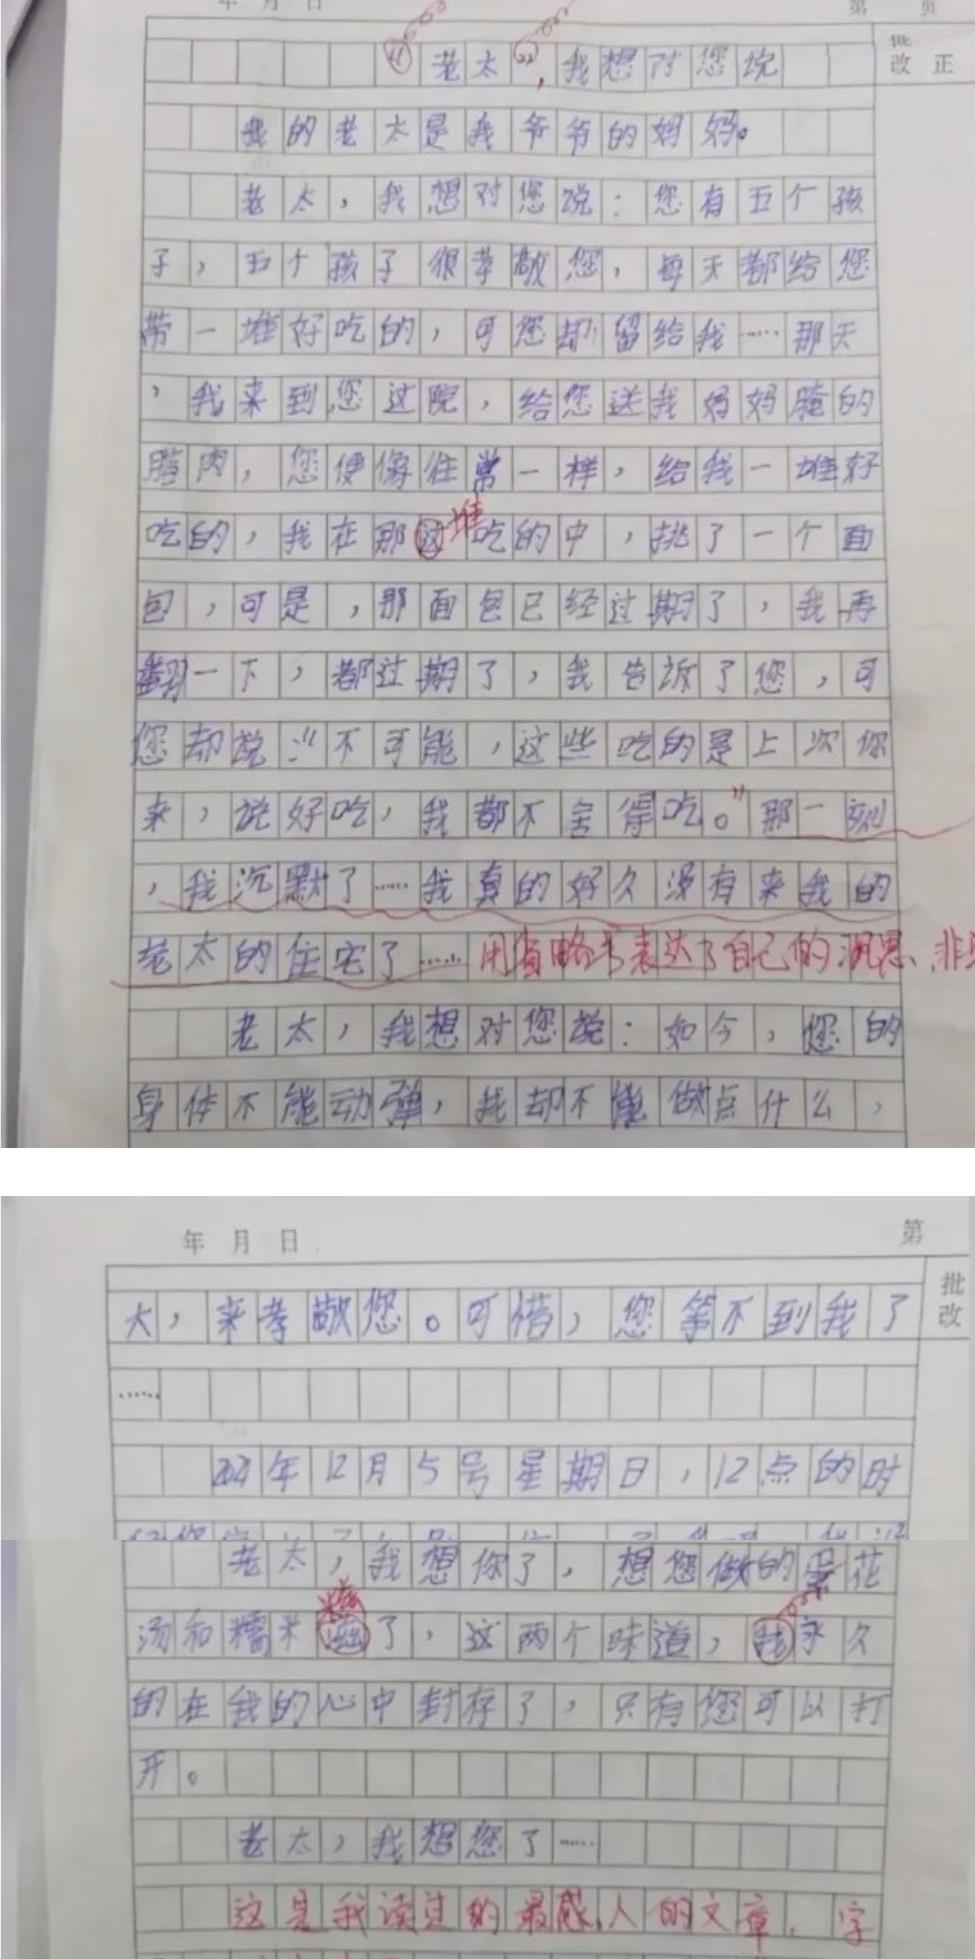 年 月 日 第 页
“老太”，我想对您说
批改 正
我的老太是我爷爷的妈妈。
老太，我想对您说：您有五个孩
子，五个孩子很孝敬您，每天都给您
带一堆好吃的，可您却留给我……那天
，我来到您过院，给您送我妈妈腌的
腊肉，您便像往常一样，给我一堆好
吃的，我在那堆吃的中，挑了一个面
包，可是，那面包已经过期了，我再
翻一下，都过期了，我告诉了您，可
您却说：“不可能，这些吃的是上次你
来，说好吃，我都不舍得吃。”那一刻
，我沉默了……我真的好久没有来我的
老太的住宅了……用省略号表达了自己的沉思、非
老太，我想对您说：如今，您的
身体不能动弹，我却不能做点什么，
年 月 日 第
批改
大，来孝敬您。可惜，您等不到我了
……
2021年12月5号星期日，12点的时
老太，我想你了，想您做的蛋花
汤和糯米糍了，这两个味道，我永久
的在我的心中封存了，只有您可以打
开。
老太，我想您了……
这是我读过的最感人的文章，字